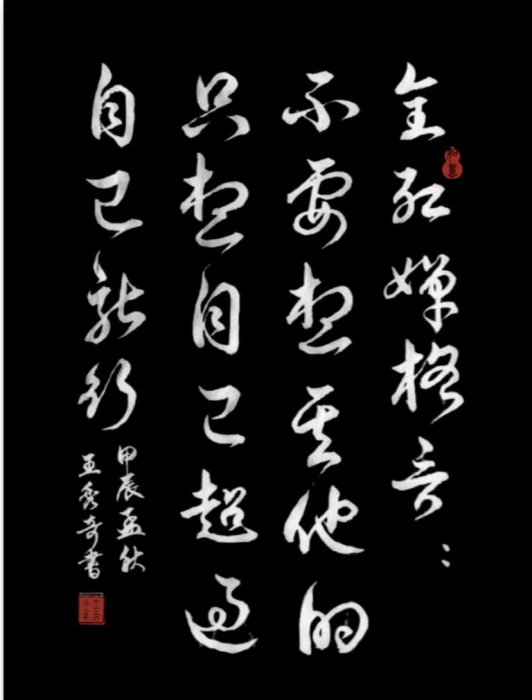 全红婵格言：
不要想其他的
只想自己超过
自己就行
甲辰孟秋
王秀奇書